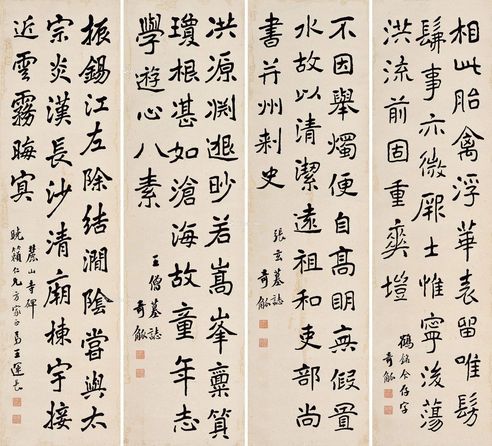 相此胎禽浮華表留唯髣
髴事亦微厥土惟寧後蕩
洪流前固重爽塏
鶴銘今存字
奇觚
不因舉燭便自高明無假置
水故以清潔遠祖和吏部尚
書并州刺史
張玄墓誌
奇觚
洪源淵遐眇若嵩峯稟箕
瓊根甚如滄海故童年志
學遊心八素
王僧墓誌
奇觚
振錫江左除結澗陰嘗與太
宗炎漢長沙清廟棟宇接
近雲霧晦冥
麓山寺碑
曉籟仁兄方家正王運長